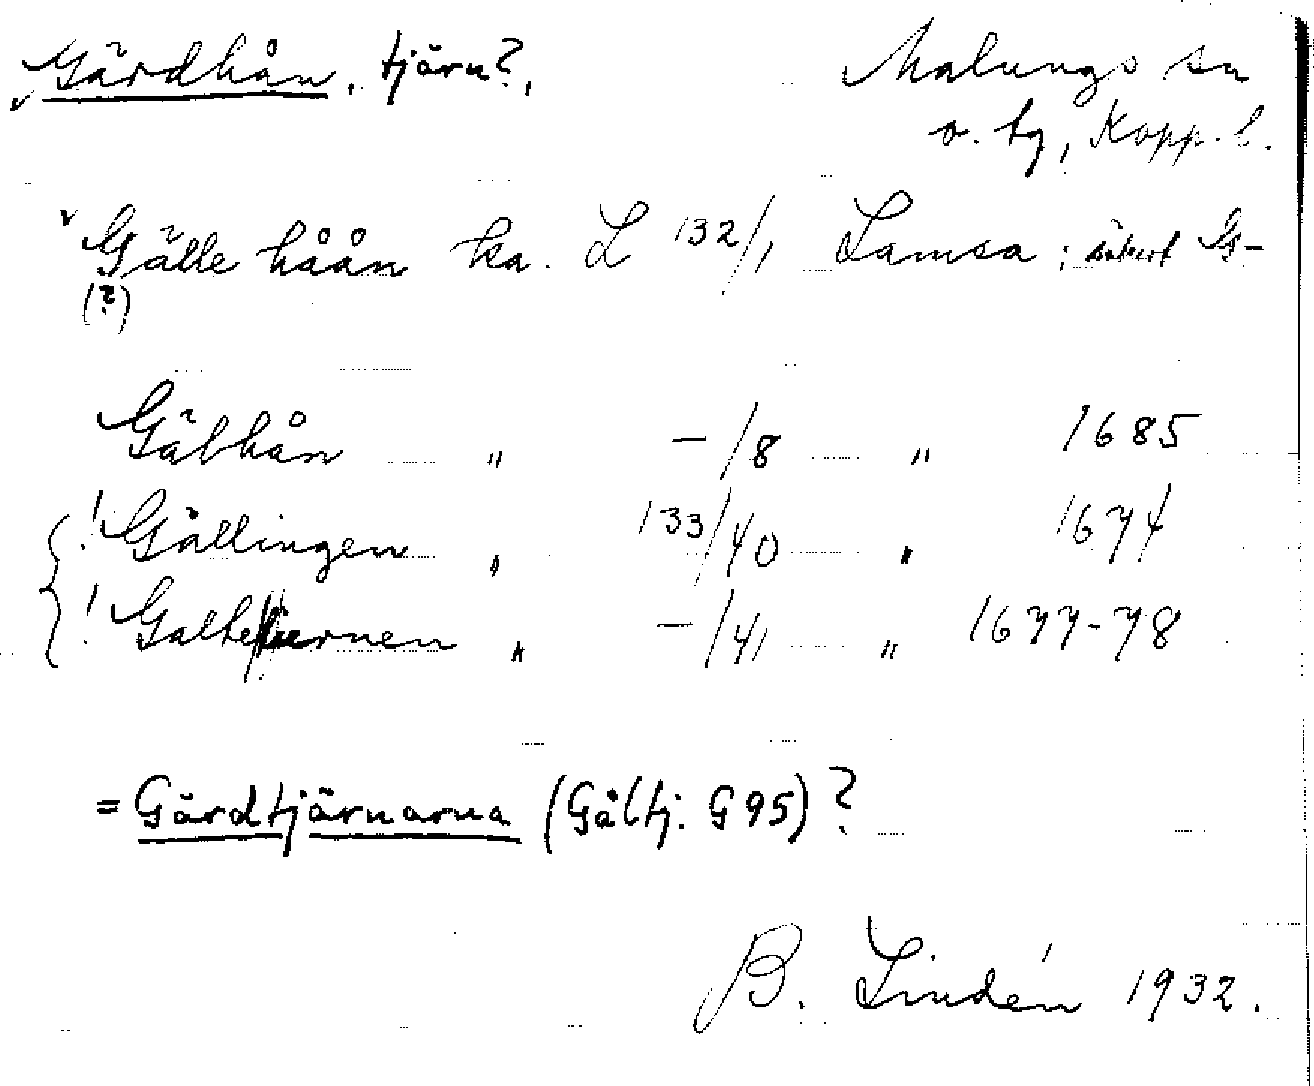 Gärdhån, tjärn?, Malungs sn
o. tg, Kopp. l.
Gälle håån ka. L 132/1 Lamsa; säkert G-
(?)
Gäbhån " -/8 " 1685
! Gällingen " 133/40 " 1674
! Galtetiernen " -/41 " 1677-78
= Gärdtjärnarna (Gåltj. G95)?
B. Lindén 1932.